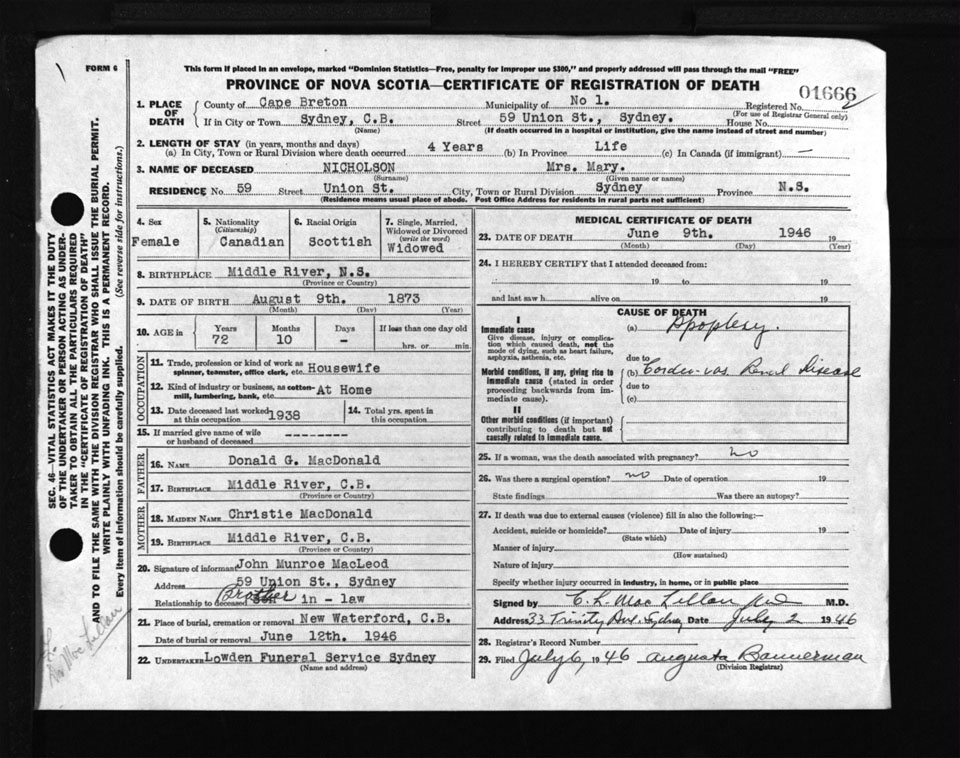 FORM 6
This form if placed in an envelope, marked "Dominion Statistics—Free, penalty for improper use $300," and properly addressed will pass through the mail "FREE"
PROVINCE OF NOVA SCOTIA—CERTIFICATE OF REGISTRATION OF DEATH
01666
1. PLACE OF DEATH
County of Cape Breton Municipality of No 1. Registered No.
(For use of Registrar General only)
If in City or Town Sydney, C.B. Street 59 Union St., Sydney. House No.
(Name) (If death occurred in a hospital or institution, give the name instead of street and number)
2. LENGTH OF STAY (in years, months and days)
(a) In City, Town or Rural Division where death occurred 4 Years (b) In Province Life (c) In Canada (if immigrant) —
3. NAME OF DECEASED NICHOLSON Mrs. Mary.
(Surname) (Given name or names)
RESIDENCE No 59 Street Union St. City, Town or Rural Division Sydney Province N.S.
(Residence means usual place of abode. Post Office Address for residents in rural parts not sufficient)
4. Sex
Female
5. Nationality
(Citizenship)
Canadian
6. Racial Origin
Scottish
7. Single, Married, Widowed or Divorced
(write the word)
Widowed
8. BIRTHPLACE Middle River, N.S.
(Province or Country)
9. DATE OF BIRTH August 9th. 1873
(Month) (Day) (Year)
10. AGE in
Years Months Days If less than one day old
72 10 - hrs. or min.
OCCUPATION
11. Trade, profession or kind of work as
spinner, teamster, office clerk, etc. Housewife
12. Kind of industry or business, as cotton-
mill, lumbering, bank, etc. At Home
13. Date deceased last worked
at this occupation 1938
14. Total yrs. spent in
this occupation
15. If married give name of wife
or husband of deceased --------
FATHER
16. NAME Donald G. MacDonald
17. BIRTHPLACE Middle River, C.B.
(Province or Country)
MOTHER
18. MAIDEN NAME Christie MacDonald
19. BIRTHPLACE Middle River, C.B.
(Province or Country)
20. Signature of informant John Munroe MacLeod
Address 59 Union St., Sydney
Relationship to deceased Brother in - law
21. Place of burial, cremation or removal New Waterford, C.B.
Date of burial or removal June 12th. 1946
22. UNDERTAKER Lowden Funeral Service Sydney
(Name and address)
MEDICAL CERTIFICATE OF DEATH
23. DATE OF DEATH June 9th. 1946 19
(Month) (Day) (Year)
24. I HEREBY CERTIFY that I attended deceased from:
19 to 19
and last saw h alive on 19
CAUSE OF DEATH
I
Immediate cause
Give disease, injury or complication which caused death, not the mode of dying, such as heart failure, asphyxia, asthenia, etc.
(a) Apoplexy.
due to
Morbid conditions, if any, giving rise to immediate cause (stated in order proceeding backwards from immediate cause).
(b) Cordio-vas. Renal Disease
due to
(c)
II
Other morbid conditions (if important) contributing to death but not causally related to immediate cause.
25. If a woman, was the death associated with pregnancy? no
26. Was there a surgical operation? no Date of operation 19
State findings Was there an autopsy?
27. If death was due to external causes (violence) fill in also the following:—
Accident, suicide or homicide? Date of injury 19
(State which)
Manner of injury
(How sustained)
Nature of injury
Specify whether injury occurred in industry, in home, or in public place
Signed by C. L. MacLellan MD M.D.
Address 33 Trinity Ave. Sydney Date July 2 1946
28. Registrar's Record Number
29. Filed July 6, 1946 Augusta Bannerman
(Division Registrar)
SEC. 46—VITAL STATISTICS ACT MAKES IT THE DUTY
OF THE UNDERTAKER OR PERSON ACTING AS UNDER-
TAKER TO OBTAIN ALL THE PARTICULARS REQUIRED
IN THE "CERTIFICATE OF REGISTRATION OF DEATH"
AND TO FILE THE SAME WITH THE DIVISION REGISTRAR WHO SHALL ISSUE THE BURIAL PERMIT.
WRITE PLAINLY WITH UNFADING INK. THIS IS A PERMANENT RECORD.
Every item of information should be carefully supplied. (See reverse side for instructions.)
MacLellan